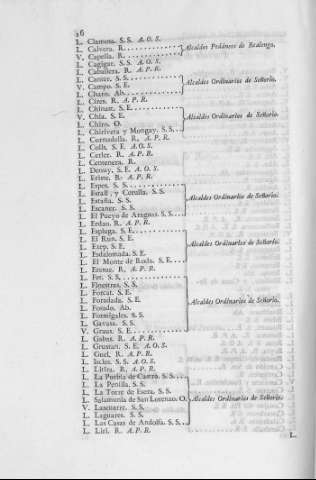 26
L. Clamosa. S. S. A. O. S.
L. Calvera. R.
V. Capella. R. Alcaldes Pedáneos de Realengo.
L. Cagigar. S. S. A. O. S.
L. Caballera. R. A. P. R.
L. Caneto. S. S.
V. Campo. S. E. Alcaldes Ordinarios de Señorío.
L. Charo. Ab.
L. Cires. R. A. P. R.
L. S. E.
V. Chía. S. E. Alcaldes Ordinarios de Señorío.
L. Chiro. O.
L. Chiriveta y Mongay. S. S.
L. Cornudella. R. A. P. R.
L. Colls. S. E. A. O. S.
L. Cerler. R. A. P. R.
L. Centenera. R.
L. Denuy. S. E. A. O. S.
L. Eriste. R. A. P. R.
L. Espes. S. S.
L. Erall, y Corulla. S. S.
L. Estaña. S. S. Alcaldes Ordinarios de Señorío.
L. Escaner. S. S.
L. El Pueyo de Araguas. S. S.
L. Erdao. R. A. P. R.
L. Espluga. S. E.
L. El Run. S. E.
L. Etep. S. E. Alcaldes Ordinarios de Señorío.
L. Esdolomada. S. E.
L. El Monte de Roda. S. E.
L. Eresue. R. A. P. R.
L. Fet. S. S.
L. Finestras. S. S.
L. Forcat. S. E.
L. Foradada. S. E. Alcaldes Ordinarios de Señorío.
L. Fosado. Ab.
L. Formigales. S. S.
L. Gavasa. S. S.
V. Graus. S. E.
L. Gabas. R. A. P. R.
L. Grustan. S. E. A. O. S.
L. Guel. R. A. P. R.
L. Iscles. S. S. A. O. S.
L. Litera. R. A. P. R.
L. La Puebla de Castro. S. S.
L. La Penilla. S. S.
L. La Torre de Esera. S. S.
L. de San Lorenzo. O. Alcaldes Ordinarios de Señorío.
V. Lascuarre. S. S.
L. Laguares. S. S.
L. Las Casas de Andolfa. S. S.
L. Liri. R. A. P. R.
L.